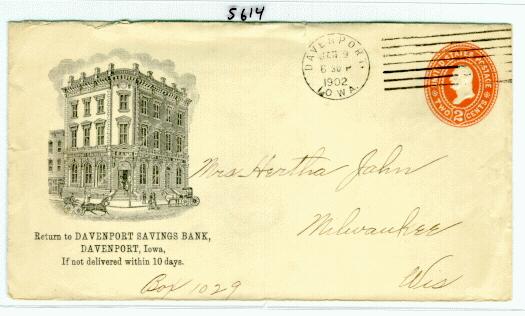 5614
DAVENPORT
6 30 P
1902
IOWA.
TWO 2 CENTS
Mrs Hertha John
Milwaukee
Wis
Return to DAVENPORT SAVINGS BANK,
DAVENPORT, Iowa,
If not delivered within 10 days.
Box 1029